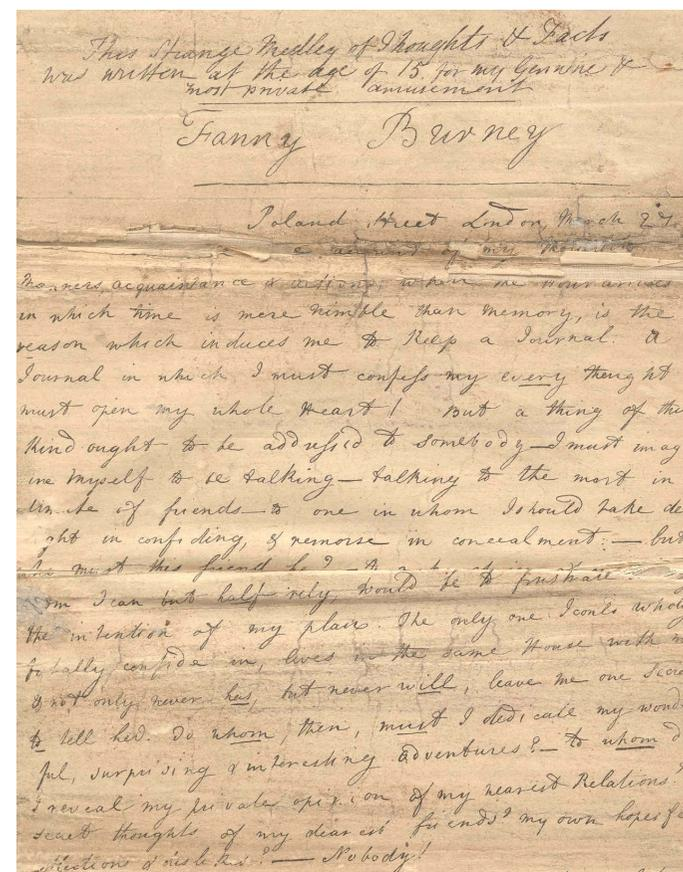 This strange Medley of Thoughts & Facts
was written at the age of 15. for my Genuine &
most private amusement
Fanny Burney
Poland Street London, March 27.
account of my
Manners, acquaintance & actions, when the Hour arrives
in which time is more nimble than memory, is the
reason which induces me to keep a Journal. a
Journal in which I must confess my every thought
must open my whole Heart! But a thing of the
kind ought to be addressed to somebody—I must imag
ine myself to be talking—talking to the most in
timate of friends—to one in whom I should take de
ght in confiding, & remorse in concealment:—but
who must this friend be?
om I can but half rely, would be to frustrate
the intention of my plan. The only one I could wholly
totally confide in, lives in the same House with m
& not only never has, but never will, leave me one secre
to tell her. To whom, then, must I dedicate my wond
ful, surprising & interesting adventures?—to whom d
I reveal my private opinion of my nearest Relations?
secret thoughts of my dearest friends? my own hopes f
flections & dislikes?—Nobody!